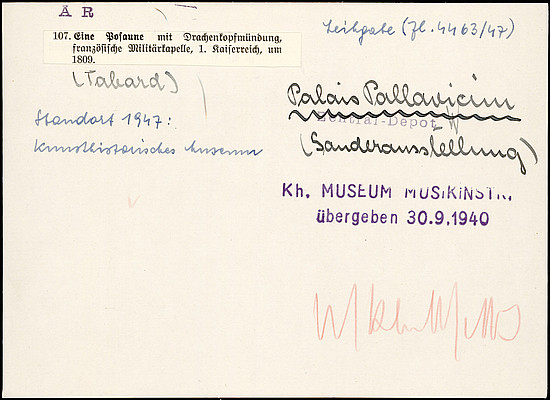 Ä R
107. Eine Posaune mit Drachenkopfmündung,
französische Militärkapelle, 1. Kaiserreich, um
1809.
(Tabard)
Standort 1947:
Kunsthistorisches Museum
Leihgabe (Zl. 4463/47)
Palais Pallavicini
Zentral-Depot
(Sonderausstellung)
Kh. MUSEUM MUSIKINSTR.
übergeben 30.9.1940